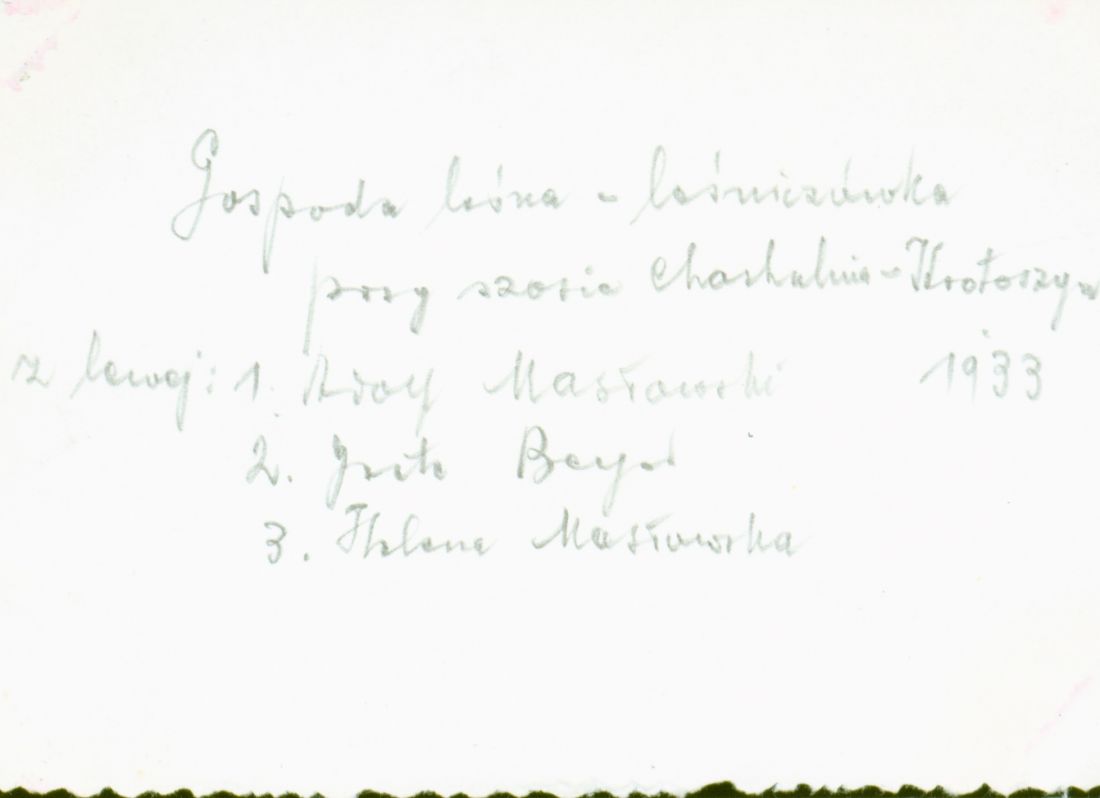 Gospoda leśna - leśniczówka
przy szosie Chachalnia - Krotoszyn
z lewej: 1. Adolf Masłowski 1933
2. 
3. Helena Masłowska